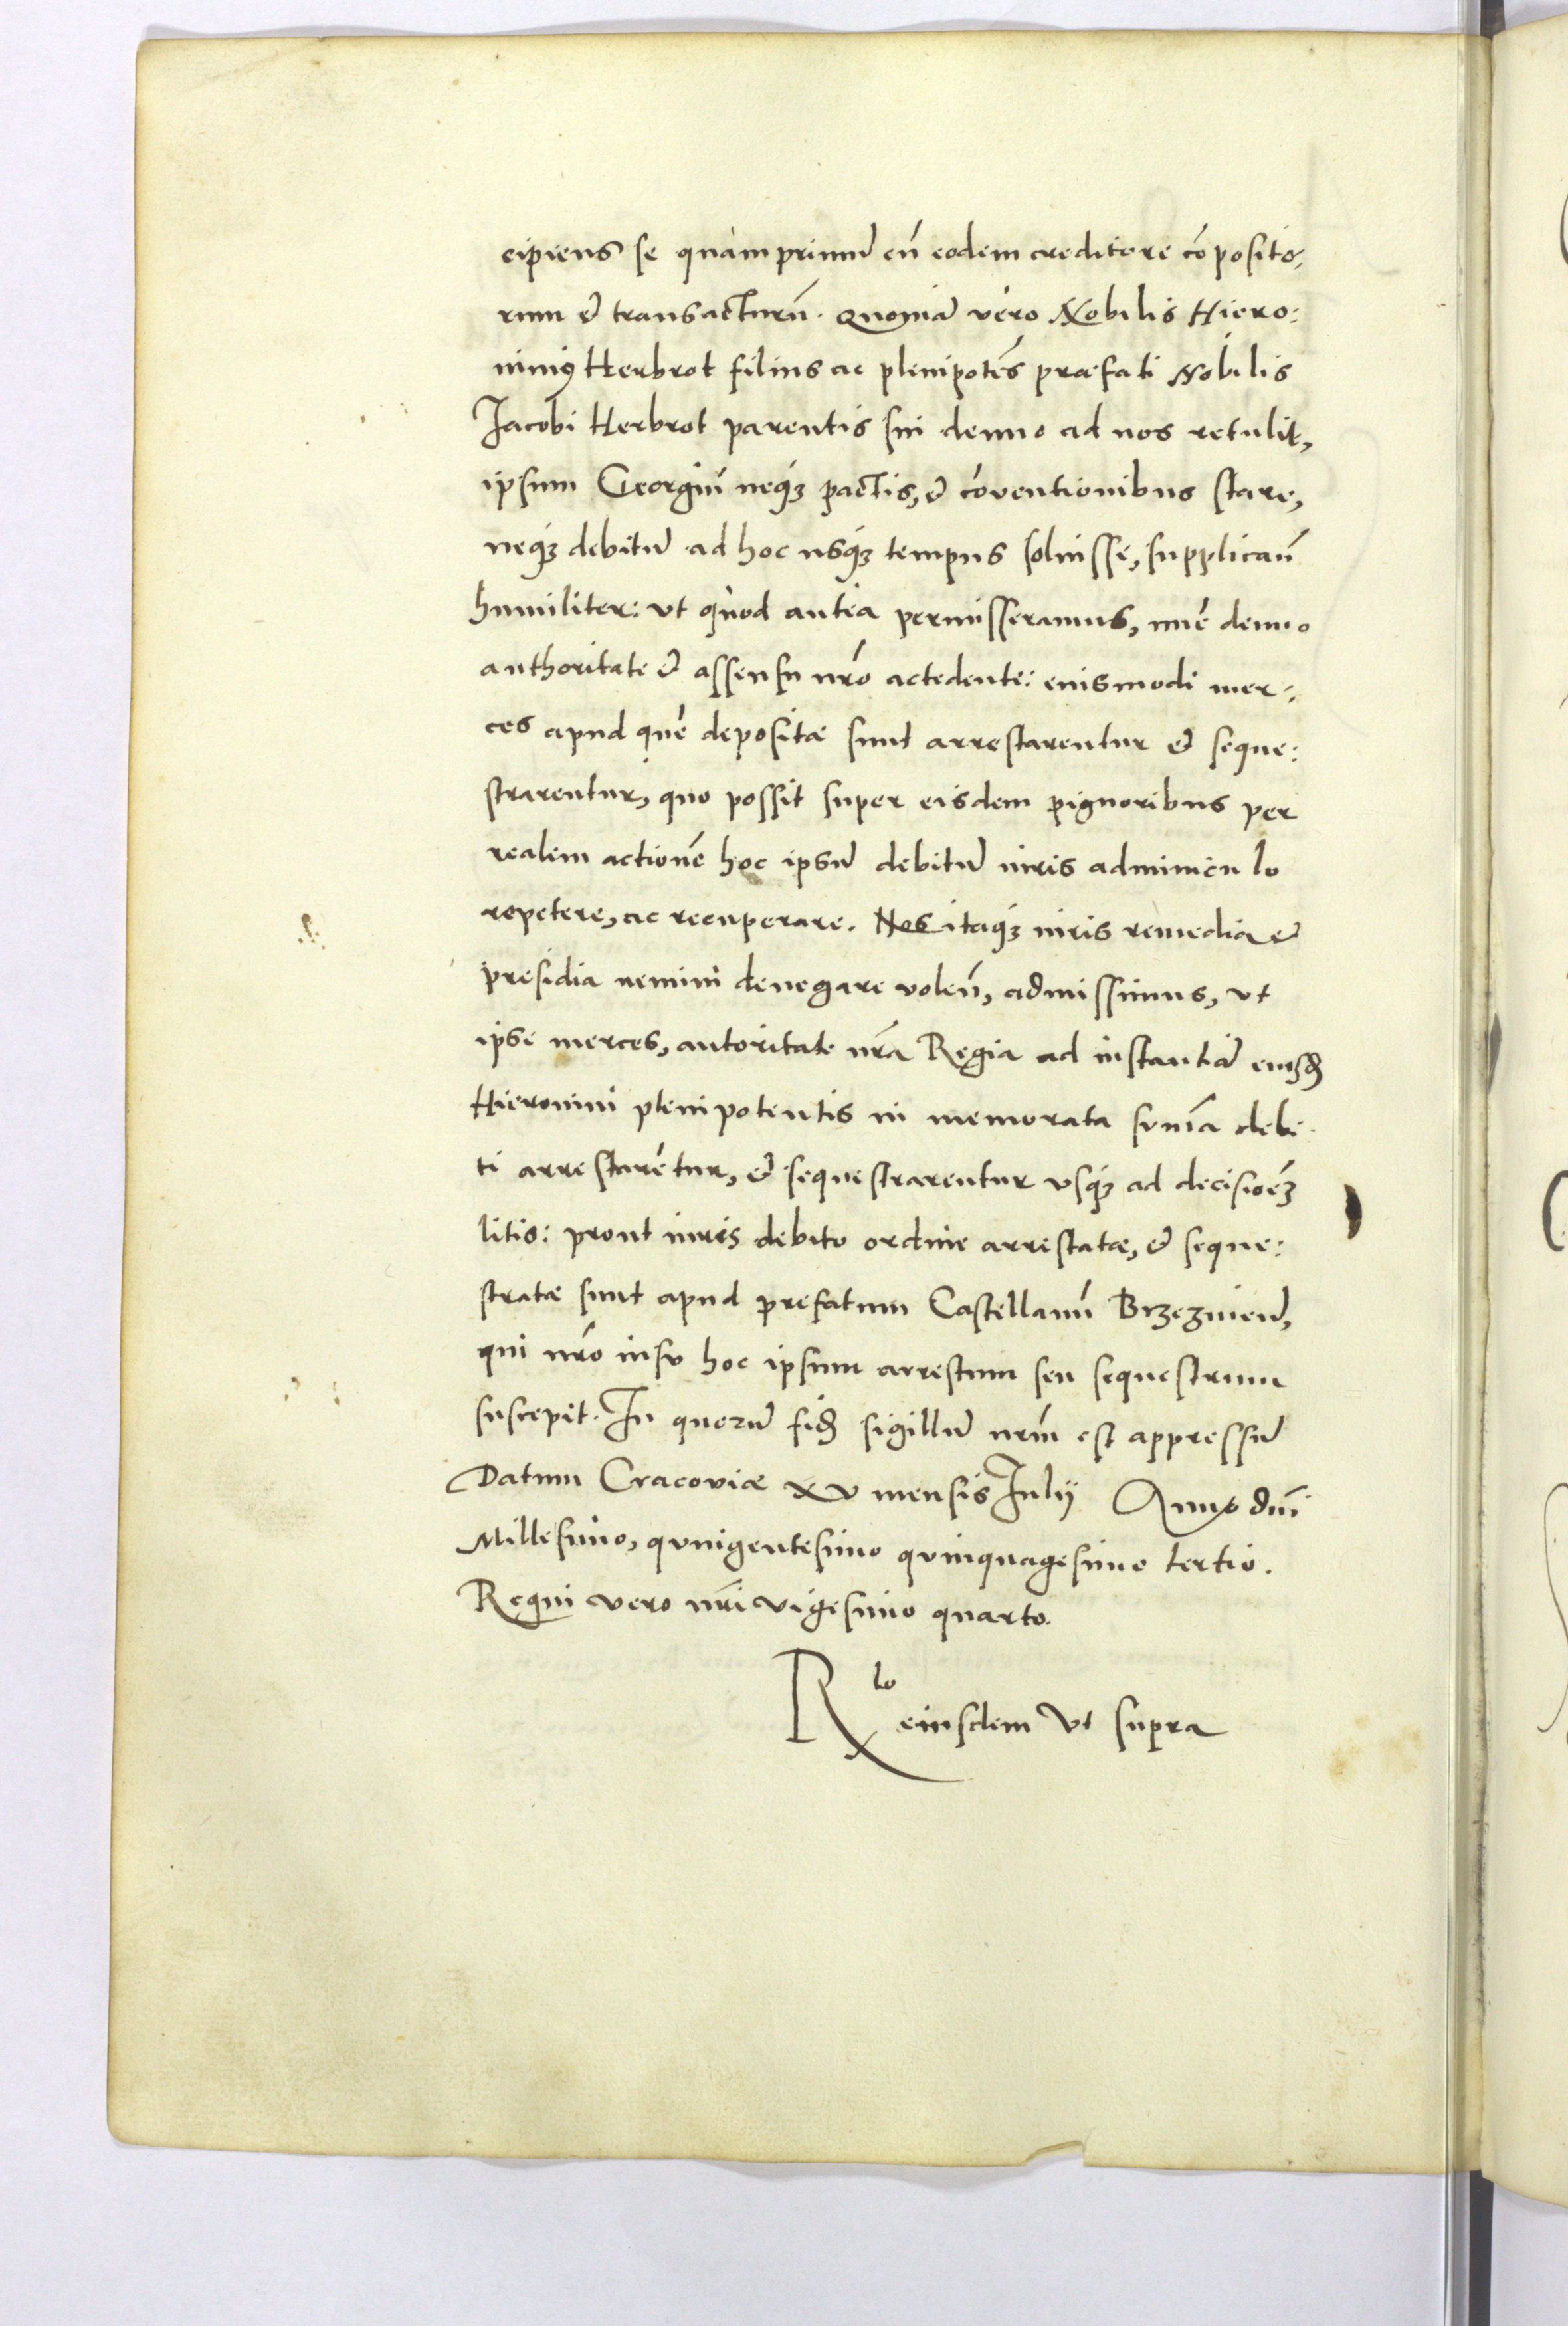 cipiens se quamprimũ cũ eodem creditore cõposito-
rum & transacturũ. Quoniã vero Nobilis Hiero:
nimꝰ Herbrot filius ac plenipotẽs præfati Nobilis
Jacobi Herbrot parentis sui denuo ad nos retulit,
ipsum Georgiũ neqꝫ pactis, & cõventionibus stare,
neqꝫ debitũ ad hoc usqꝫ tempus soluisse, supplicaũ
humiliter: ut quod antea permisseramus, nũc denuo
authoritate & assensu nrõ accedente: euismodi mer:
ces apud quẽ depositæ sunt arrestarentur & seque:
strarentur, quo possit super eisdem pignoribus per
realem actionẽ hoc ipsũ debitũ iuris adminiculo
repetere, ac recuperare. Nos itaqꝫ iuris remedia &
presidia nemini denegare voleñ, admissimus, ut
ipse merces, autoritate nrã Regia ad instantiã eiusd
Hieronimi plenipotentis in memorata sũma debi-
ti arrestarẽtur, & sequestrarentur vsqꝫ ad decisioẽꝫ
litis: prout iuris debito ordine arrestatæ, & seque:
stratæ sunt apud prefatum Castellanũ Brzezineñ,
qui nrõ iussv hoc ipsum arrestum seu sequestrum
suscepit. In quorũ fid sigillũ nrm̃ est appressũ
Datum Cracoviæ xv mensis Julij Anno dni
Millesimo, qvingentesimo qvinquagesimo tertio.
Regni vero nrĩ vigesimo quarto.
R lo eiusdem vt supra